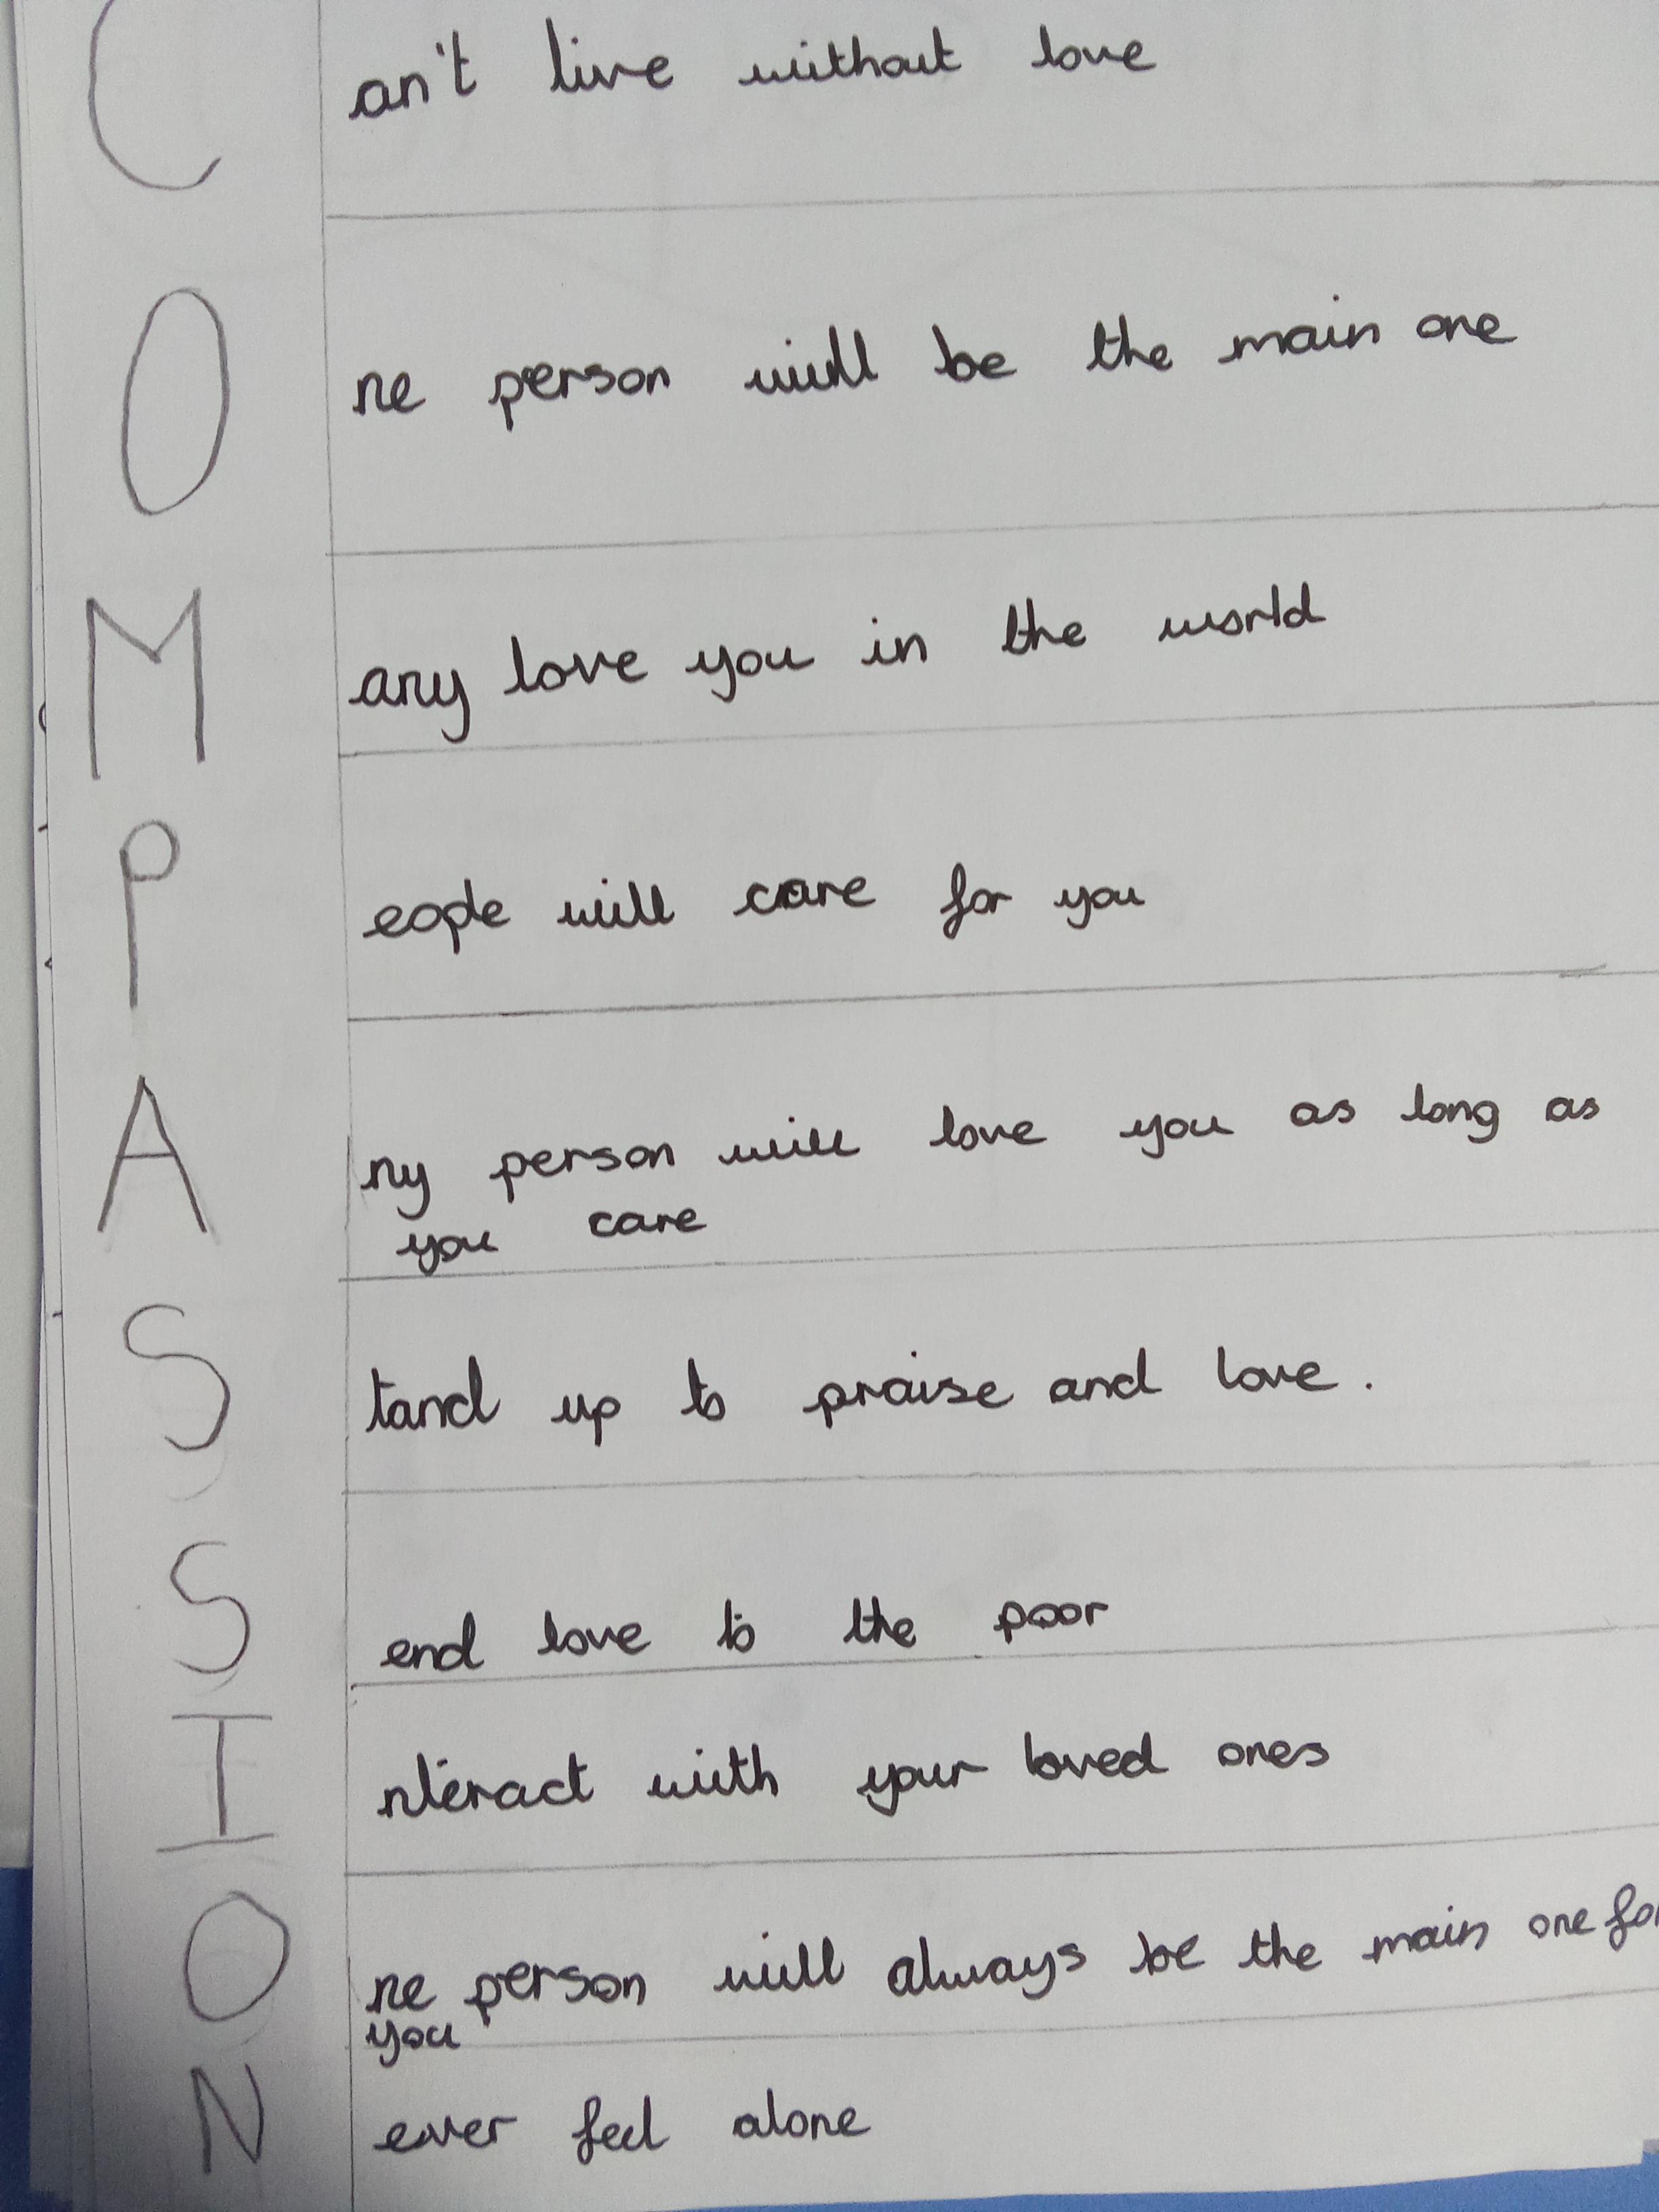 Can't live without love
One person will be the main one
Many love you in the world
People will care for you
Any person will love you as long as
you care
Stand up to praise and love.
Send love to the poor
Interact with your loved ones
One person will always be the main one for
you
Never feel alone